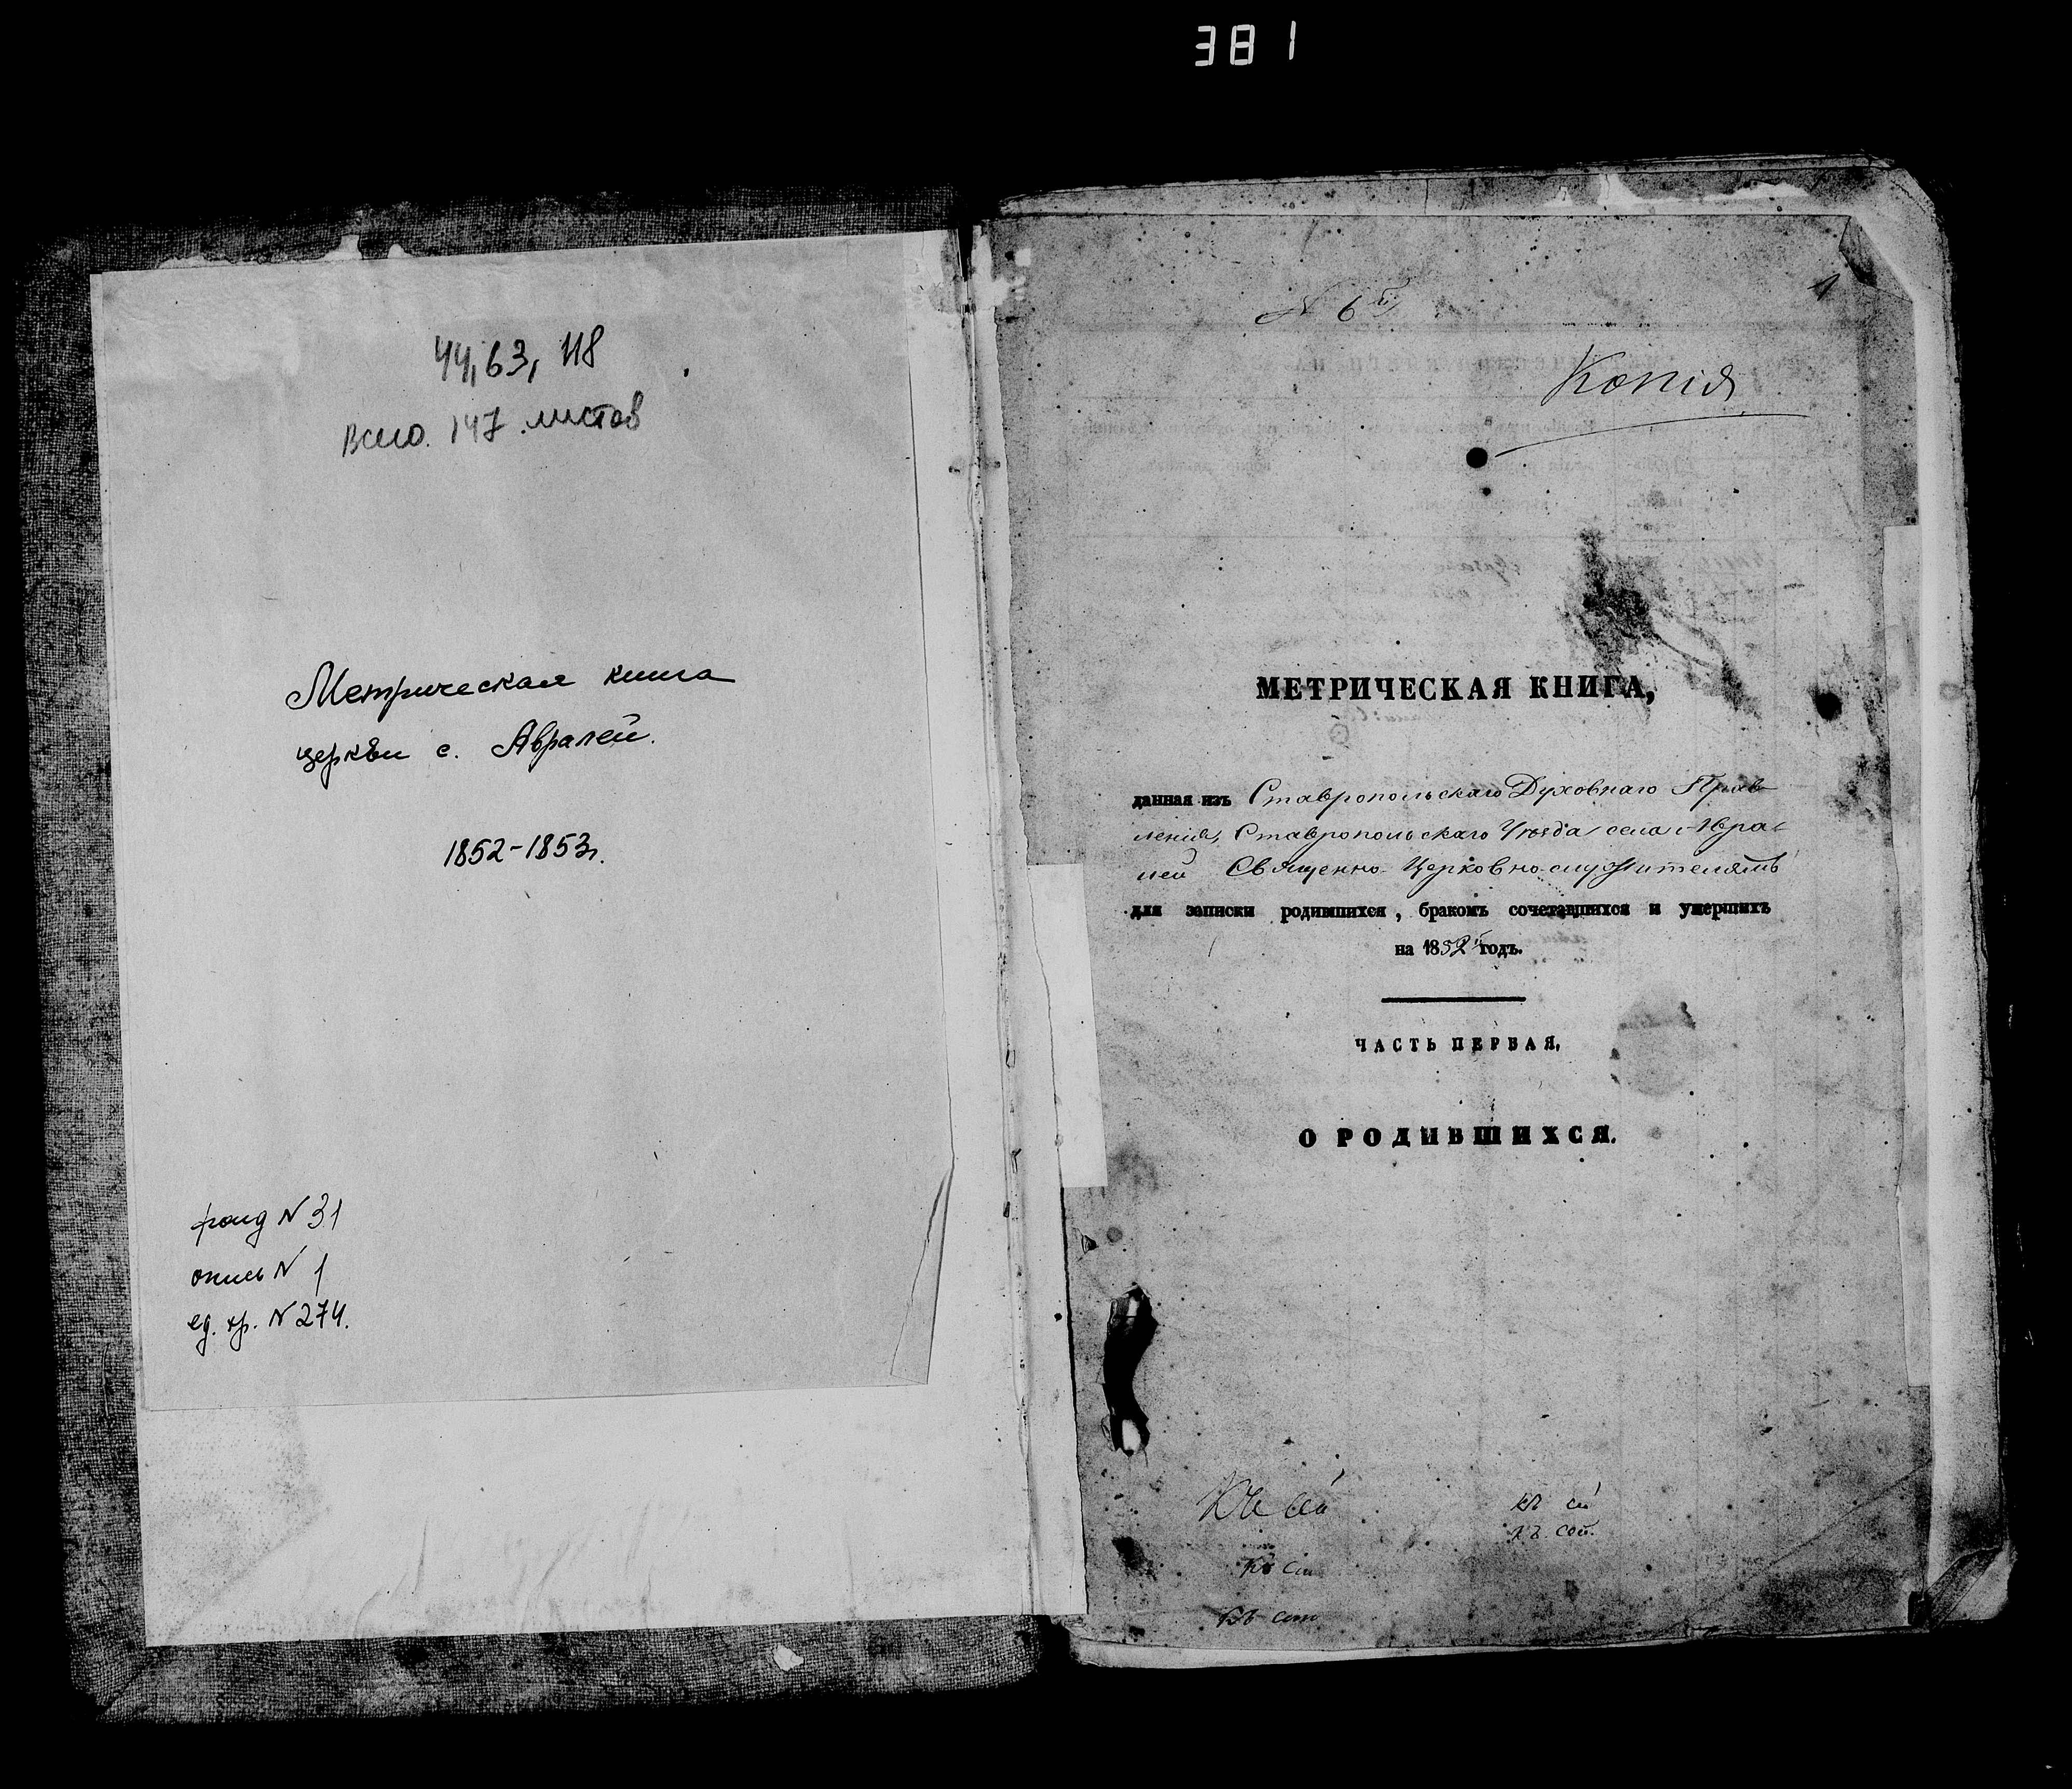 381
44, 63, 118
Всего. 147 листов
Метрическая книга
церкви с. Авралей.
1852-1853г.
фонд N 31
опись N 1
ед. хр. N 274.
1
N 6й
Копія
МЕТРИЧЕСКАЯ КНИГА,
данная изъ Ставропольскаго Духовнаго Прав-
ленія, Ставропольскаго Уѣзда села Авра-
лей Священно-Церковно-служителямъ
для записки родившихся, бракомъ сочетавшихся и умершихъ
на 1852й годъ.
ЧАСТЬ ПЕРВАЯ,
О РОДИВШИХСЯ.
къ сей
къ сей